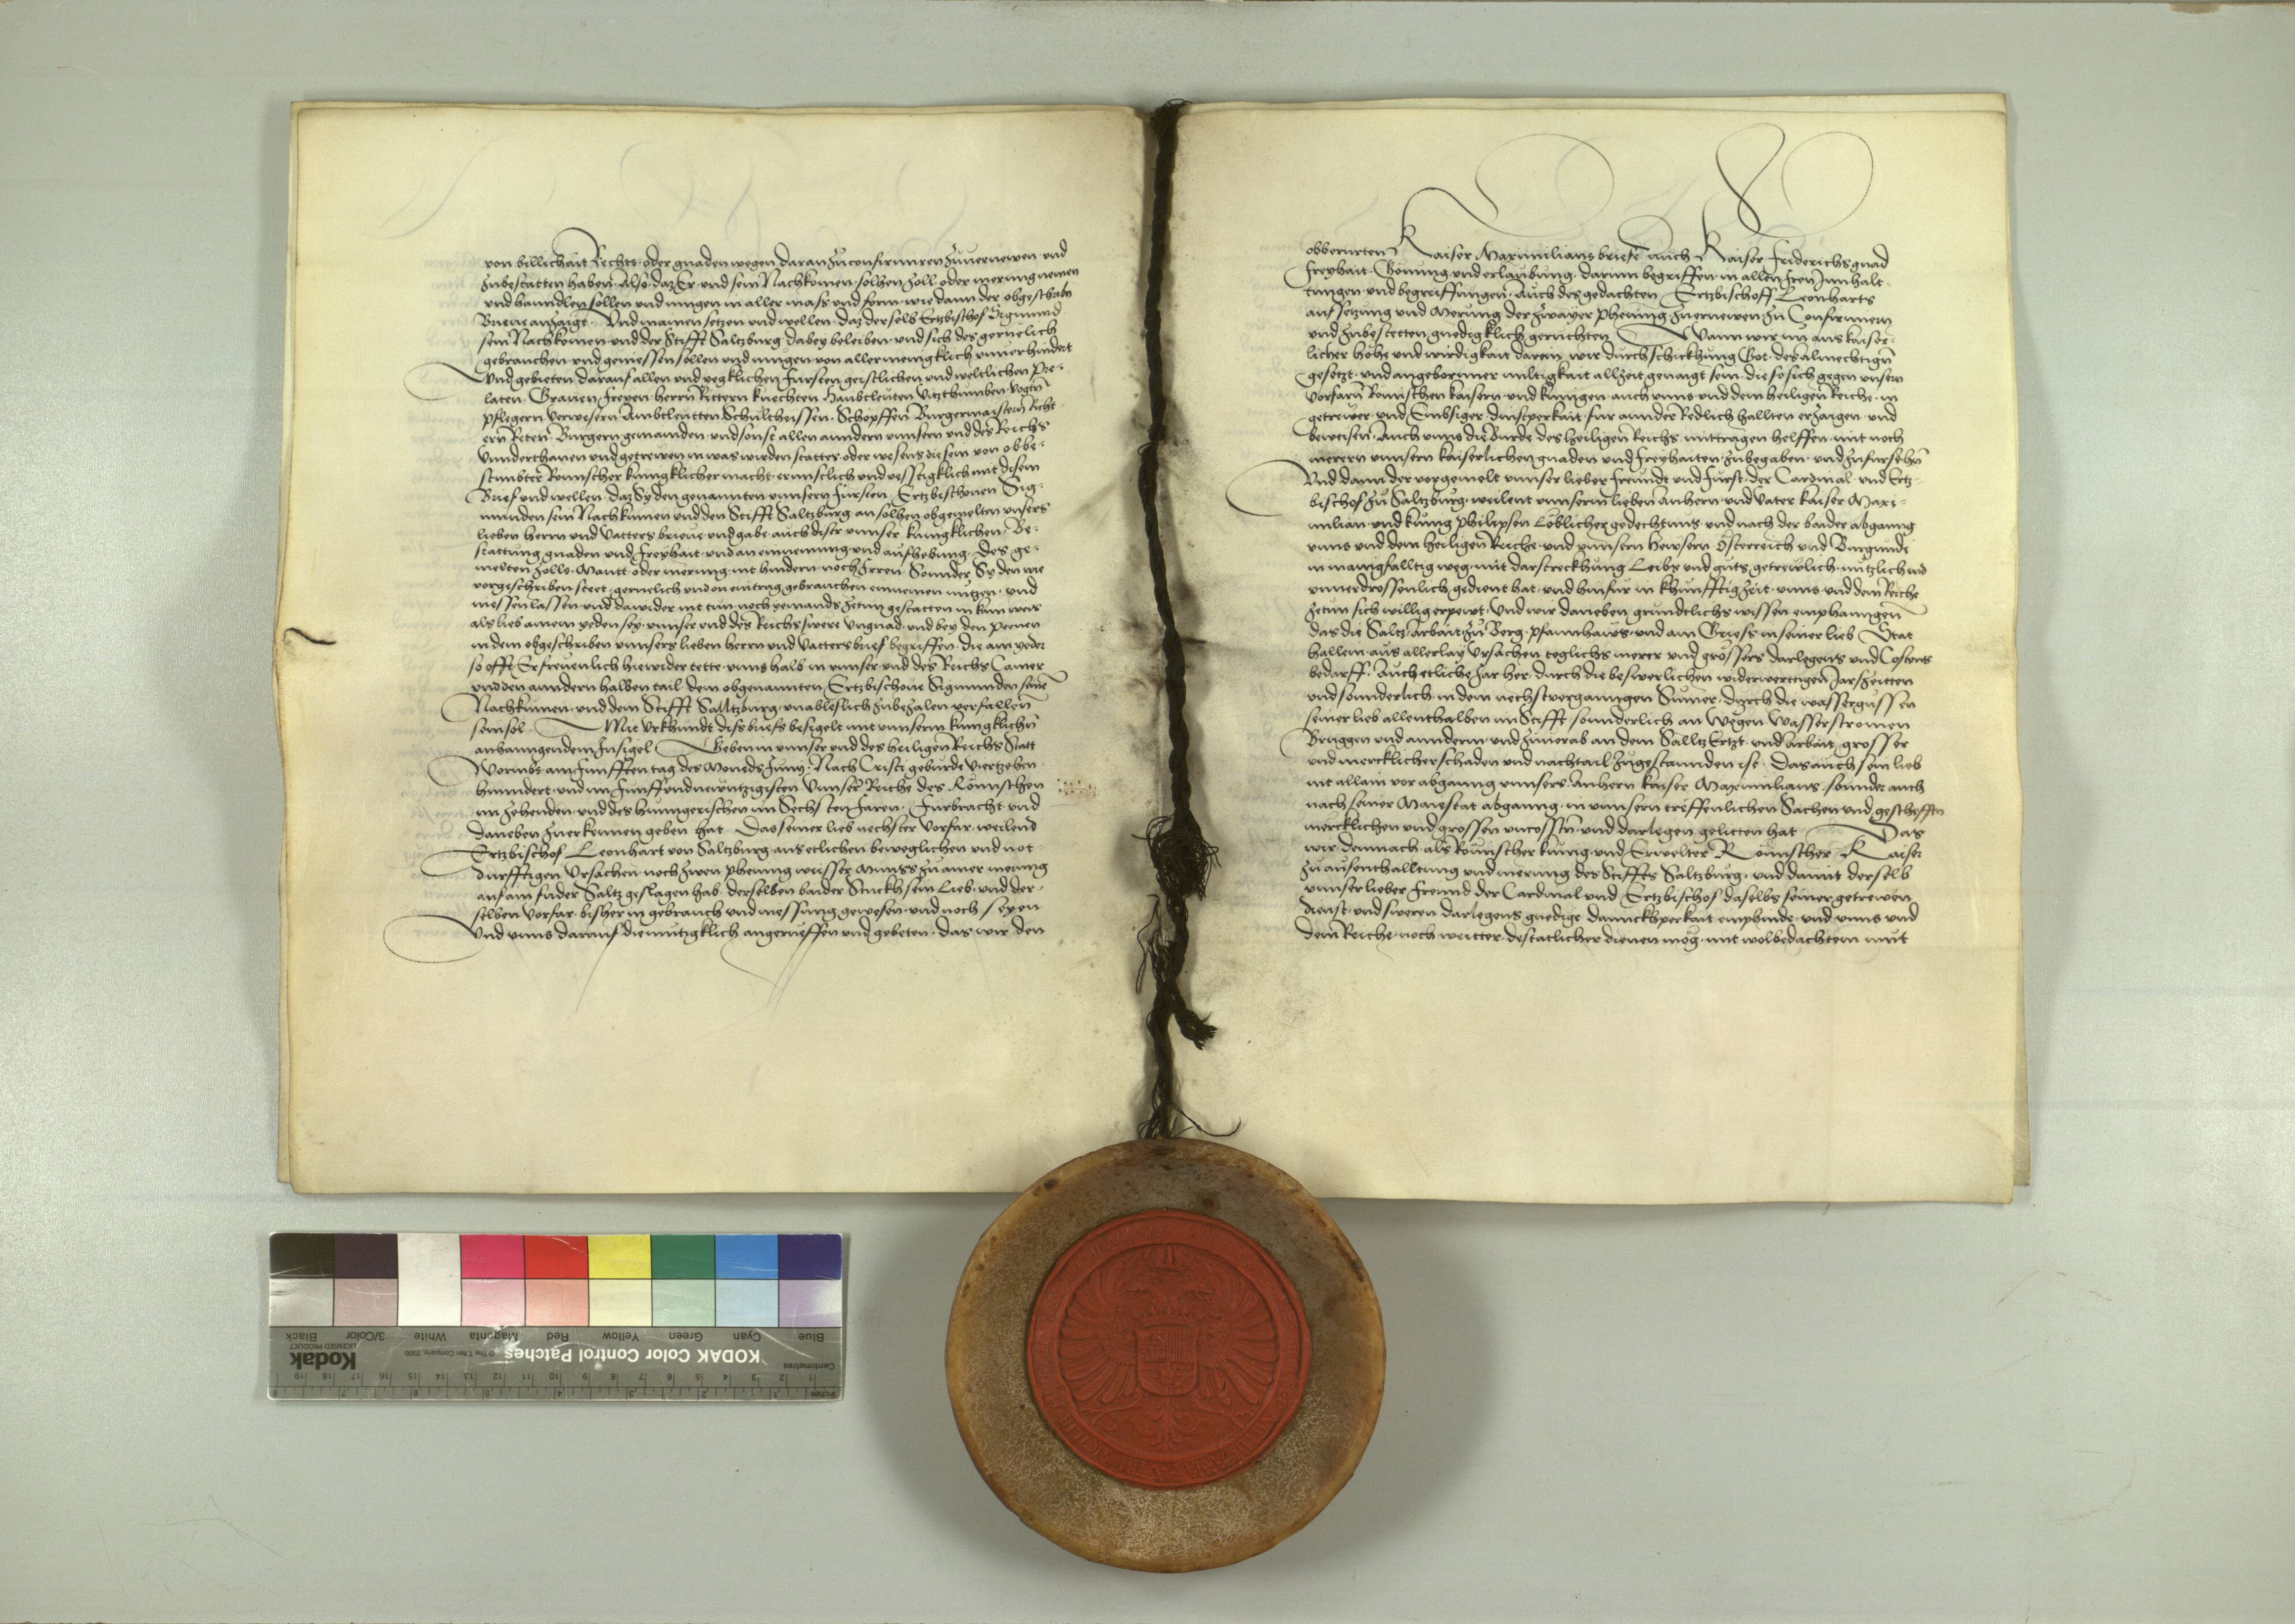 von billichait Rechts oder gnaden wegen daran zuconfirmiren zuuernewen und
zubestatten haben. Also. daz Er und sein Nachkomen solhen zoll oder merung nemen
und hanndlen sollen und mugen in aller mass und form wie dann der obgeschriben
Brieue anzaigt. Und mainen setzen und wellen. daz derselb Ertzbischof Sigmund
sein Nachkomen und der Stifft Saltzburg dabey beleiben. und sich des geruelich
gebrauchen und geniessen sollen und mugen von allermenigklich unuerhindert
Und gebieten darauf allen und yegklichen Fursten geistlichen und weltlichen Pre-
laten. Grauen freyen herrn Rittern knechten Haubtleuten Vitzthumben Vogtn
Pflegern verwesern Ambtleutten. Schultheissen. Schopffen Burgermaistern Richt-
ern Reten. Burgern gemainden und sonst allen anndern unnsern und des Reichs
Unnderthanen und getrewen in was wirden stattes oder wesens die sein von obbe-
stimbter Romischer kunigklicher macht. ernnstlich und vesstigklich mit disem
Brief und wellen. daz Sy den genannten unnsern Fursten. Ertzbischouen Sig-
munden sein Nachkumen und den Stifft Saltzburg an solhen obgemelten unsers
lieben herrn und Vatters brieue und gabe auch diser unnser kunigklichen Be-
stattung gnaden und freyhait und an einnemung und aufhebung. Des ge-
melten zolls. Mautt oder merung. nit hindern noch Irren. Sonnder Sy den wie
vorgeschriben steet. geruelich und on eintrag gebrauchen einnemen nutzen. und
niessen lassen. und dawider nit tun. noch yemands zetun gestatten in kain weis
als lieb ainem yeden sey. unnser und des Reichs swere ungnad. und bey den peenen
in dem obgeschriben unnsers lieben herrn und Vatters brief begriffen. die ain yeder
so offt Er freuenlich hiewider tette. unns halb in unnser und des Reichs Camer
und den anndern halben tail. dem obgenannten Ertzbischoue Sigmunden seinen
Nachkumen. und dem Stifft Salltzburg. unableslich zubezalen verfallen
sein sol. Mit urkhundt diss briefs besigelt mit unnserm kunigklichen
anhanngendem Insigel. Geben in unnser und des heiligen Reichs Statt
Wormbs. am funfften tag des Moneds Juny. Nach Cristi geburde viertzehen
hunndert. und im funffundnewntzigisten Unnser Reiche des Romischen
im zehenden. und des hunngerischen im Sechsten Jaren. Furbracht und
daneben zuerkennen geben hat. Das seiner lieb nechster vorfar. weilend
Ertzbischof Leonhart von Saltzburg. aus etlichen beweglichen und not-
durfftigen Ursachen. noch zwen phening weisser Munss zu ainer merung
auf ain fuder Saltz geslagen hab. derselben baider Stuckh sein Lieb. und der-
selben vorfar. bisher in gebrauch und niessung gewesen. und noch seyen
Und unns darauf diemutigklich angerueffen und gebeten. das wir den
obberurten Kaiser Maximilians briefe. auch Kaiser Friderichs gnad
freyhait. Gönnung und erlaubung. darinn begriffen. in allen Iren Innhalt-
tungen. und begreiffungen. Auch des gedachten Ertzbischoff Leonharts
aufsetzung und Merung der zwayer Phening zuernewen. zu Confirmiern
und zubestetten. gnedigklich geruchten. Wann wir nu aus kaiser-
licher höhe und wirdigkait darein wir durch schickhung Got. des almechtigen
gesetzt. und angeborner miltigkait allzeit genaigt sein. die so sich gegen unsern
vorfarn Römischen kaisern und kunigen. auch unns und dem heiligen Reiche. in
getrewer und Embsiger. dinstperkait. fur annder Redlich hallten erzaigen. und
beweisen. Auch unns die Burde des heiligen Reichs mittragen helffen. mit noch
merern unnsern kaiserlichen gnaden und freyhaiten zubegaben. und zufursehen
Und dann der vorgemelt unnser lieber freundt und furst. der Cardinal. und Ertz-
bischof zu Saltzburg. weilent unnserm lieben Anhern. und Vater kaiser Maxi-
milian. und kunig Philipsen Löblicher gedechtnus. und nach der baider abganng
unns und dem heiligen Reiche. und unnsern Hewsern Österreich und Burgundi
in manigfalltig weg. mit darstreckhung Leibs und guts. getrewlich. nutzlich und
unuerdrossenlich gedient hat. und hinfur in khunfftig zeit. unns. und dem Reiche
zetun sich willig erpewt. Und wir daneben grundtlichs wissen emphanngen
das die Saltz arbait zu Berg. pfannhaws. und am Griess in seiner lieb Stat
hallein. aus allerlay Ursachen teglichs merer und grössers darlegens und Costens
bedarff. Auch etliche Jar her. durch die beswerlichen widerwerttigen Jarszeitten
und sonnderlich in dem nechstverganngen Sumer. durch die wassergussen
seiner lieb allenthalben im Stifft sonnderlich an Wegen Wasserstromen
Bruggen und anndern. und zuuorab an dem Salltz Ertzt. und arbait grosser
und mercklicher schaden und nachtail zugestannden ist. Das auch sein lieb
nit allain vor abganng unnsers Anhern kaiser Maximilians. sonnder auch
nach seiner Maiestat abganng. in unnsern treffenlichen Sachen und geschefften
mercklichen und grossen uncossten. und darlegen gelitten hat. Das
wir demnach als Romischer kunig. und Erwelter Römischer Kaiser
zu aufenthalltung und merung des Stiffts Saltzburg. und damit derselb
unnser lieber freund der Cardinal und Ertzbischof daselbs seiner getrewen
dienst. und sweren darlegens gnedige dannckhperkait emphinde. und unns und
dem Reiche. noch weitter. destatlicher dienen mög. mit wolbedachtem mut
KODAK Color Control Patches
Kodak
LICENSED PRODUCT
© The Tiffen Company, 2000
Blue Cyan Green Yellow Red Magenta White 3/Color Black
Centimetres
Inches